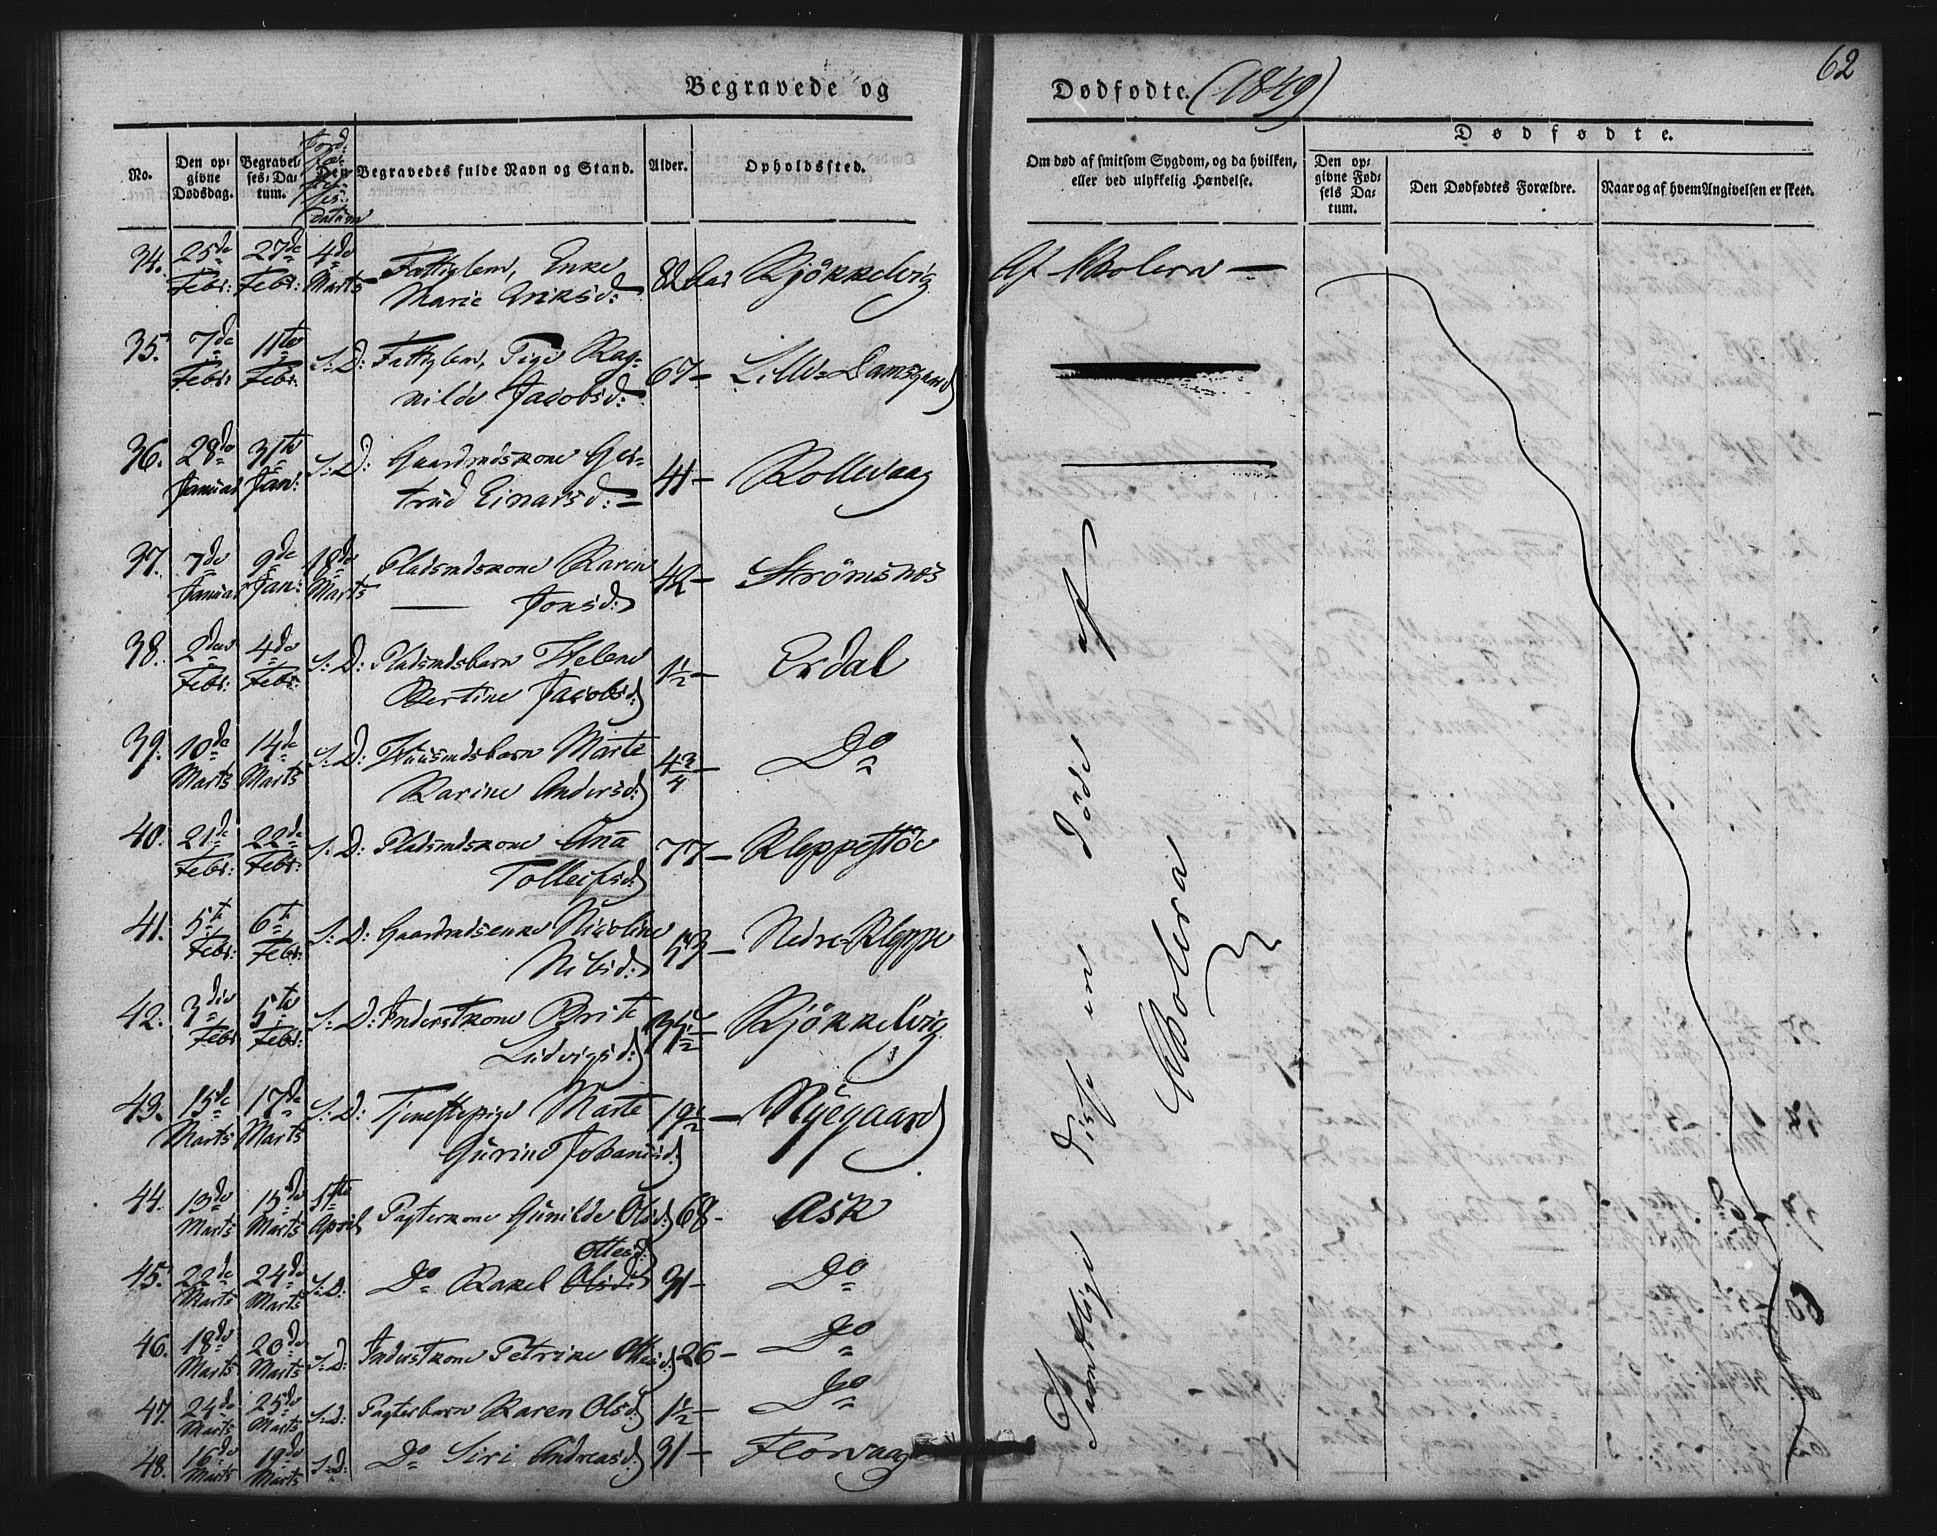 62
Begravede og
Dødfødte. (1849)
No.
Den opgivne Dødsdag.
Begravelses-Datum.
Jordfæstelses-datum
Den
Begravedes fulde Navn og Stand.
Alder.
Opholdssted.
Om død af smitsom Sygdom, og da hvilken, eller ved ulykkelig Hændelse.
Dødfødte.
Den opgivne Fødsels Datum.
Den Dødfødtes Forældre.
Naar og af hvem Angivelsen er skeet.
34. 25de Febr: 27de Febr: 4de Marts Fattiglem, Enke Marie Eriksd: 82 Aar Kjøkkelvig Af Kolera —
35. 7de Febr: 11te Febr: S: D: Fattiglem, Pige Ragnilde Jacobsd: 67 — Lille-Damsgaard
36. 28de Januar 31te Jan: S: D: Gaardmdskone Gertrud Einarsd: — 41 — Kollevaag
37. 7de Januar 9de Jan: 18de Marts Pladsmdskone Karen Jonsd: 42 — Strømsnæs
38. 2den Febr: 4de Febr: S: D: Pladsmdsbarn Helene Bertine Jacobsd: 1½ — Erdal
39. 10de Marts 14de Marts S: D: Huusmdsbarn Marte Karine Andersd: 4¾ — Do
40. 21de Febr: 22de Febr: S: D: Pladsmdskone Ana Tolleifsd: 77 — Kleppestøe
41. 5te Febr: 6te Febr: S: D: Gaardmdsenke Nicoline Nilsd: 53 — Nedre-Kleppe
42. 3die Febr 5te Febr: S: D: Inderstkone Brite Ludvigsd: 35½ — Kjøkkelvig
43. 15de Marts 17de Marts S: D: Tjenestepige Marte Gurine Johanesd: 19½ — Myegaard
44. 13de Marts 15de Marts 1ste April Pagterkone Gunilde Olsd: 68 - Ask
45. 22de Marts 24de Marts S: D: Do Rakel Olsd: Ottesd: 31 — Do
46. 18de Marts 20de Marts S: D: Inderstkone Petrike Ottesd: 26 — Do
47. 24de Marts 25de Marts S: D: Pagterbarn Karen Olsd: 1½ — Do
48. 16de Marts 19de Marts S: D: Do Siri Andreasd: 31 — Florvaag
Samtlige disse ere døde af
Kolera